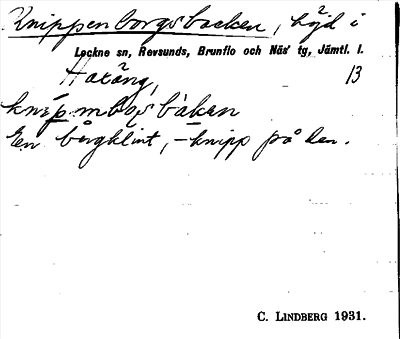 Knippenborgsbacken, höjd i
Lockne sn, Revsunds, Brunflo och Näs' tg, Jämtl. l.
Haxäng, 13
En bärgklint, – knipp på den.
C. LINDBERG 1931.